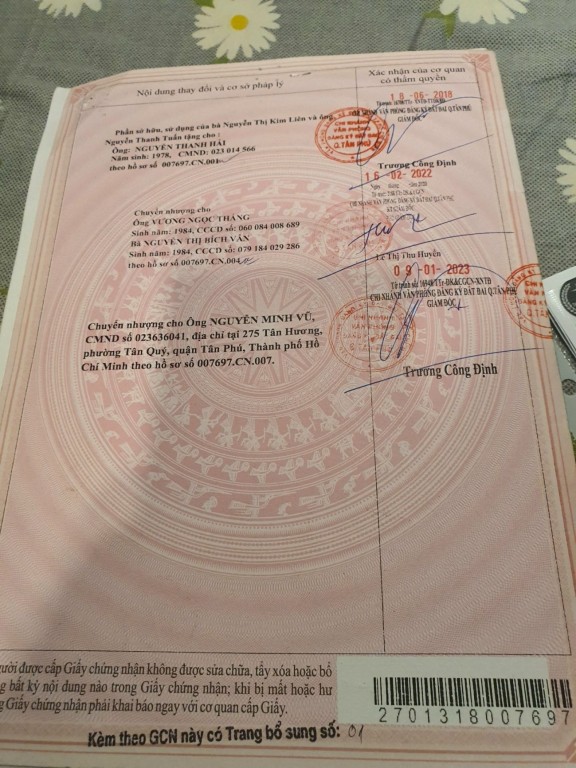 Nội dung thay đổi và cơ sở pháp lý
Xác nhận của cơ quan
có thẩm quyền
Phần sở hữu, sử dụng của bà Nguyễn Thị Kim Liên và ông
Nguyễn Thanh Tuấn tặng cho :
Ông: NGUYỄN THANH HẢI
Năm sinh: 1978, CMND: 023 014 566
theo hồ sơ số 007697.CN.001
18-06-2018
VĂN PHÒNG ĐĂNG KÝ ĐẤT ĐAI Q.TÂN PHÚ
GIÁM ĐỐC
CHI NHÁNH
VĂN PHÒNG
ĐĂNG KÝ ĐẤT ĐAI
Q.TÂN PHÚ
Trương Công Định
Chuyển nhượng cho
Ông VƯƠNG NGỌC THĂNG
Sinh năm: 1984, CCCD số: 060 084 008 689
Bà NGUYỄN THỊ BÍCH VÂN
Sinh năm: 1984, CCCD số: 079 184 029 286
theo hồ sơ số 007697.CN.004
16-02-2022
CHI NHÁNH VĂN PHÒNG ĐĂNG KÝ ĐẤT ĐAI Q.TÂN PHÚ
Lê Thị Thu Huyền
Chuyển nhượng cho Ông NGUYỄN MINH VŨ,
CMND số 023636041, địa chỉ tại 275 Tân Hương,
phường Tân Quý, quận Tân Phú, Thành phố Hồ
Chí Minh theo hồ sơ số 007697.CN.007.
09-01-2023
CHI NHÁNH VĂN PHÒNG ĐĂNG KÝ ĐẤT ĐAI Q.TÂN PHÚ
GIÁM ĐỐC
Trương Công Định
được cấp Giấy chứng nhận không được sửa chữa, tẩy xóa hoặc bổ
bất kỳ nội dung nào trong Giấy chứng nhận; khi bị mất hoặc hư
Giấy chứng nhận phải khai báo ngay với cơ quan cấp Giấy.
2701318007697
Kèm theo GCN này có Trang bổ sung số: 01